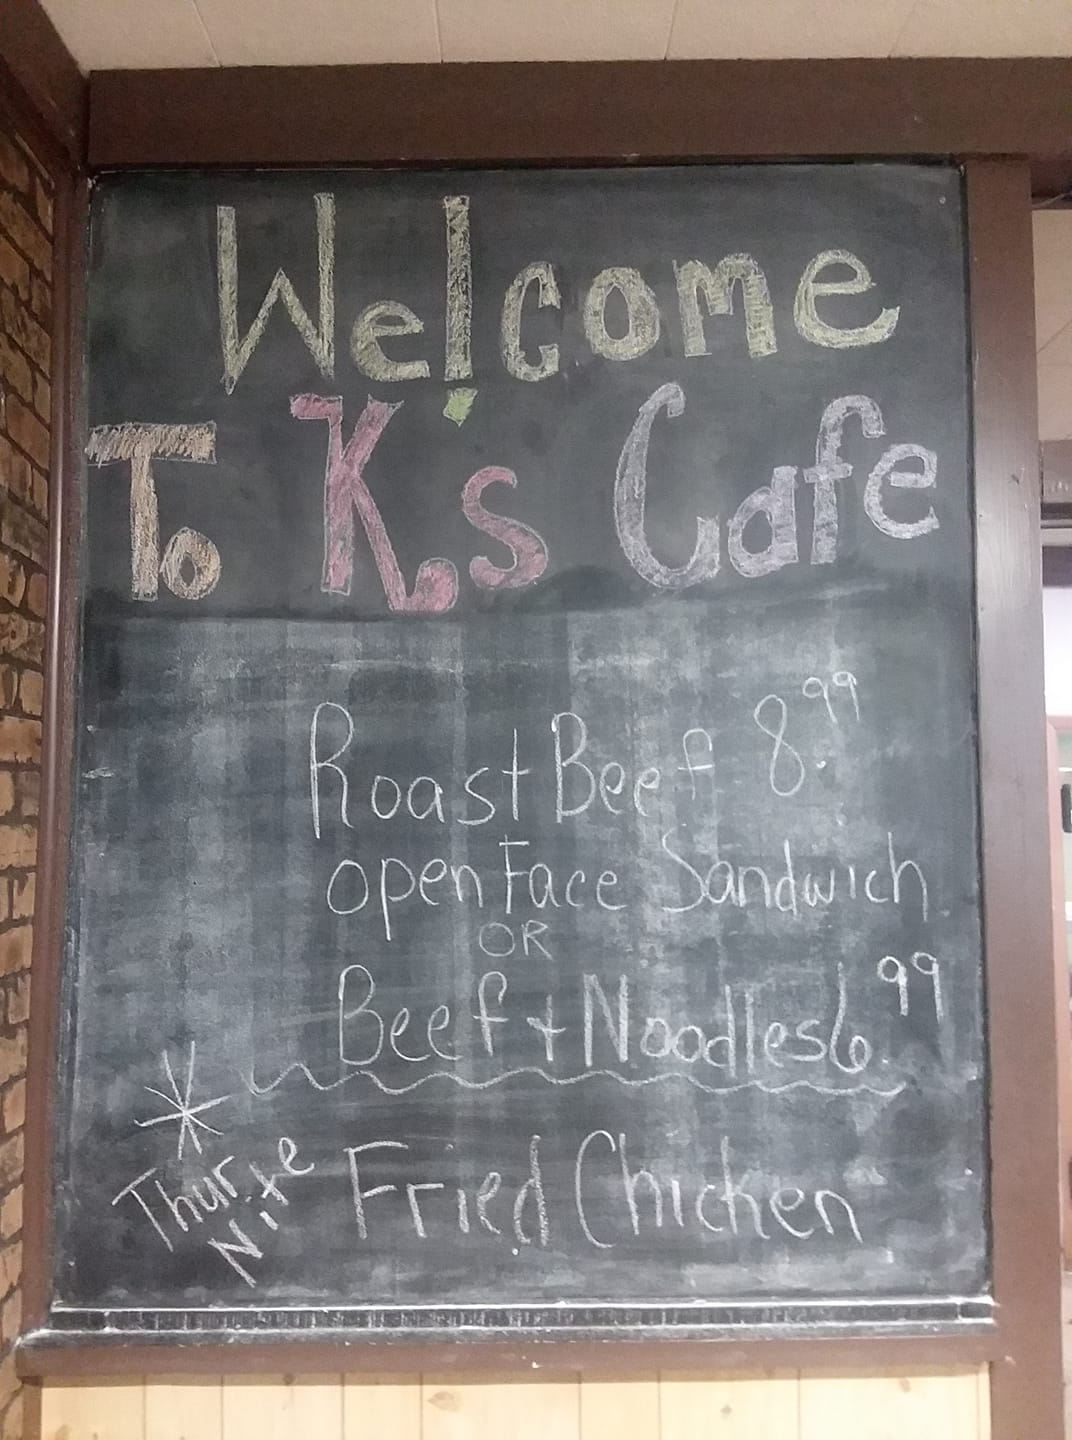 Welcome
To K.s Cafe
Roast Beef 8.99
open Face Sandwich
OR
Beef + Noodles 6.99
* Thur. Nite Fried Chicken